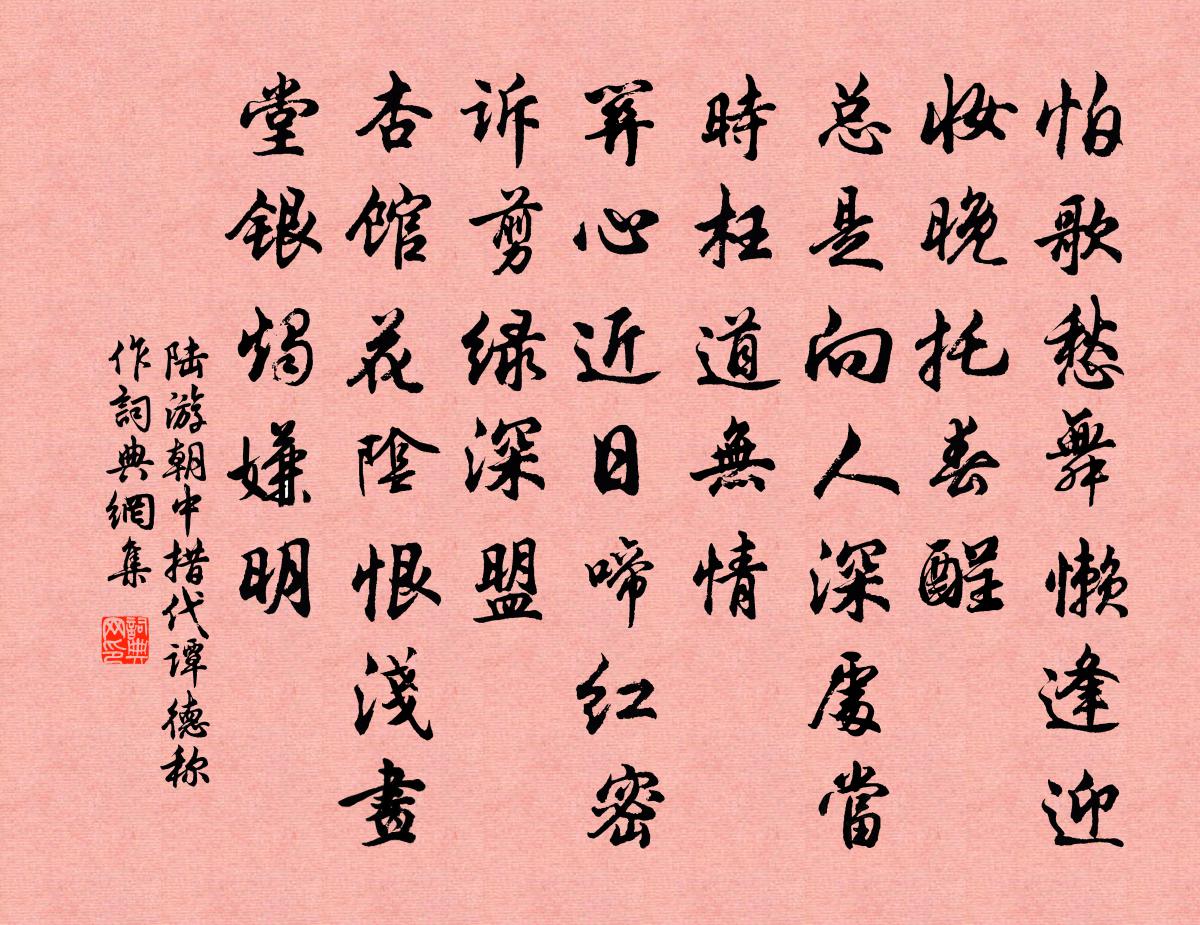 怕歌愁舞懒逢迎
妆晚托春酲
总是向人深處當
時枉道無情
關心近日啼红密
诉剪绿深盟
杏馆花陰恨淺畫
堂銀燭嫌明
陆游朝中措代谭德称
作詞典網集
詞典网印